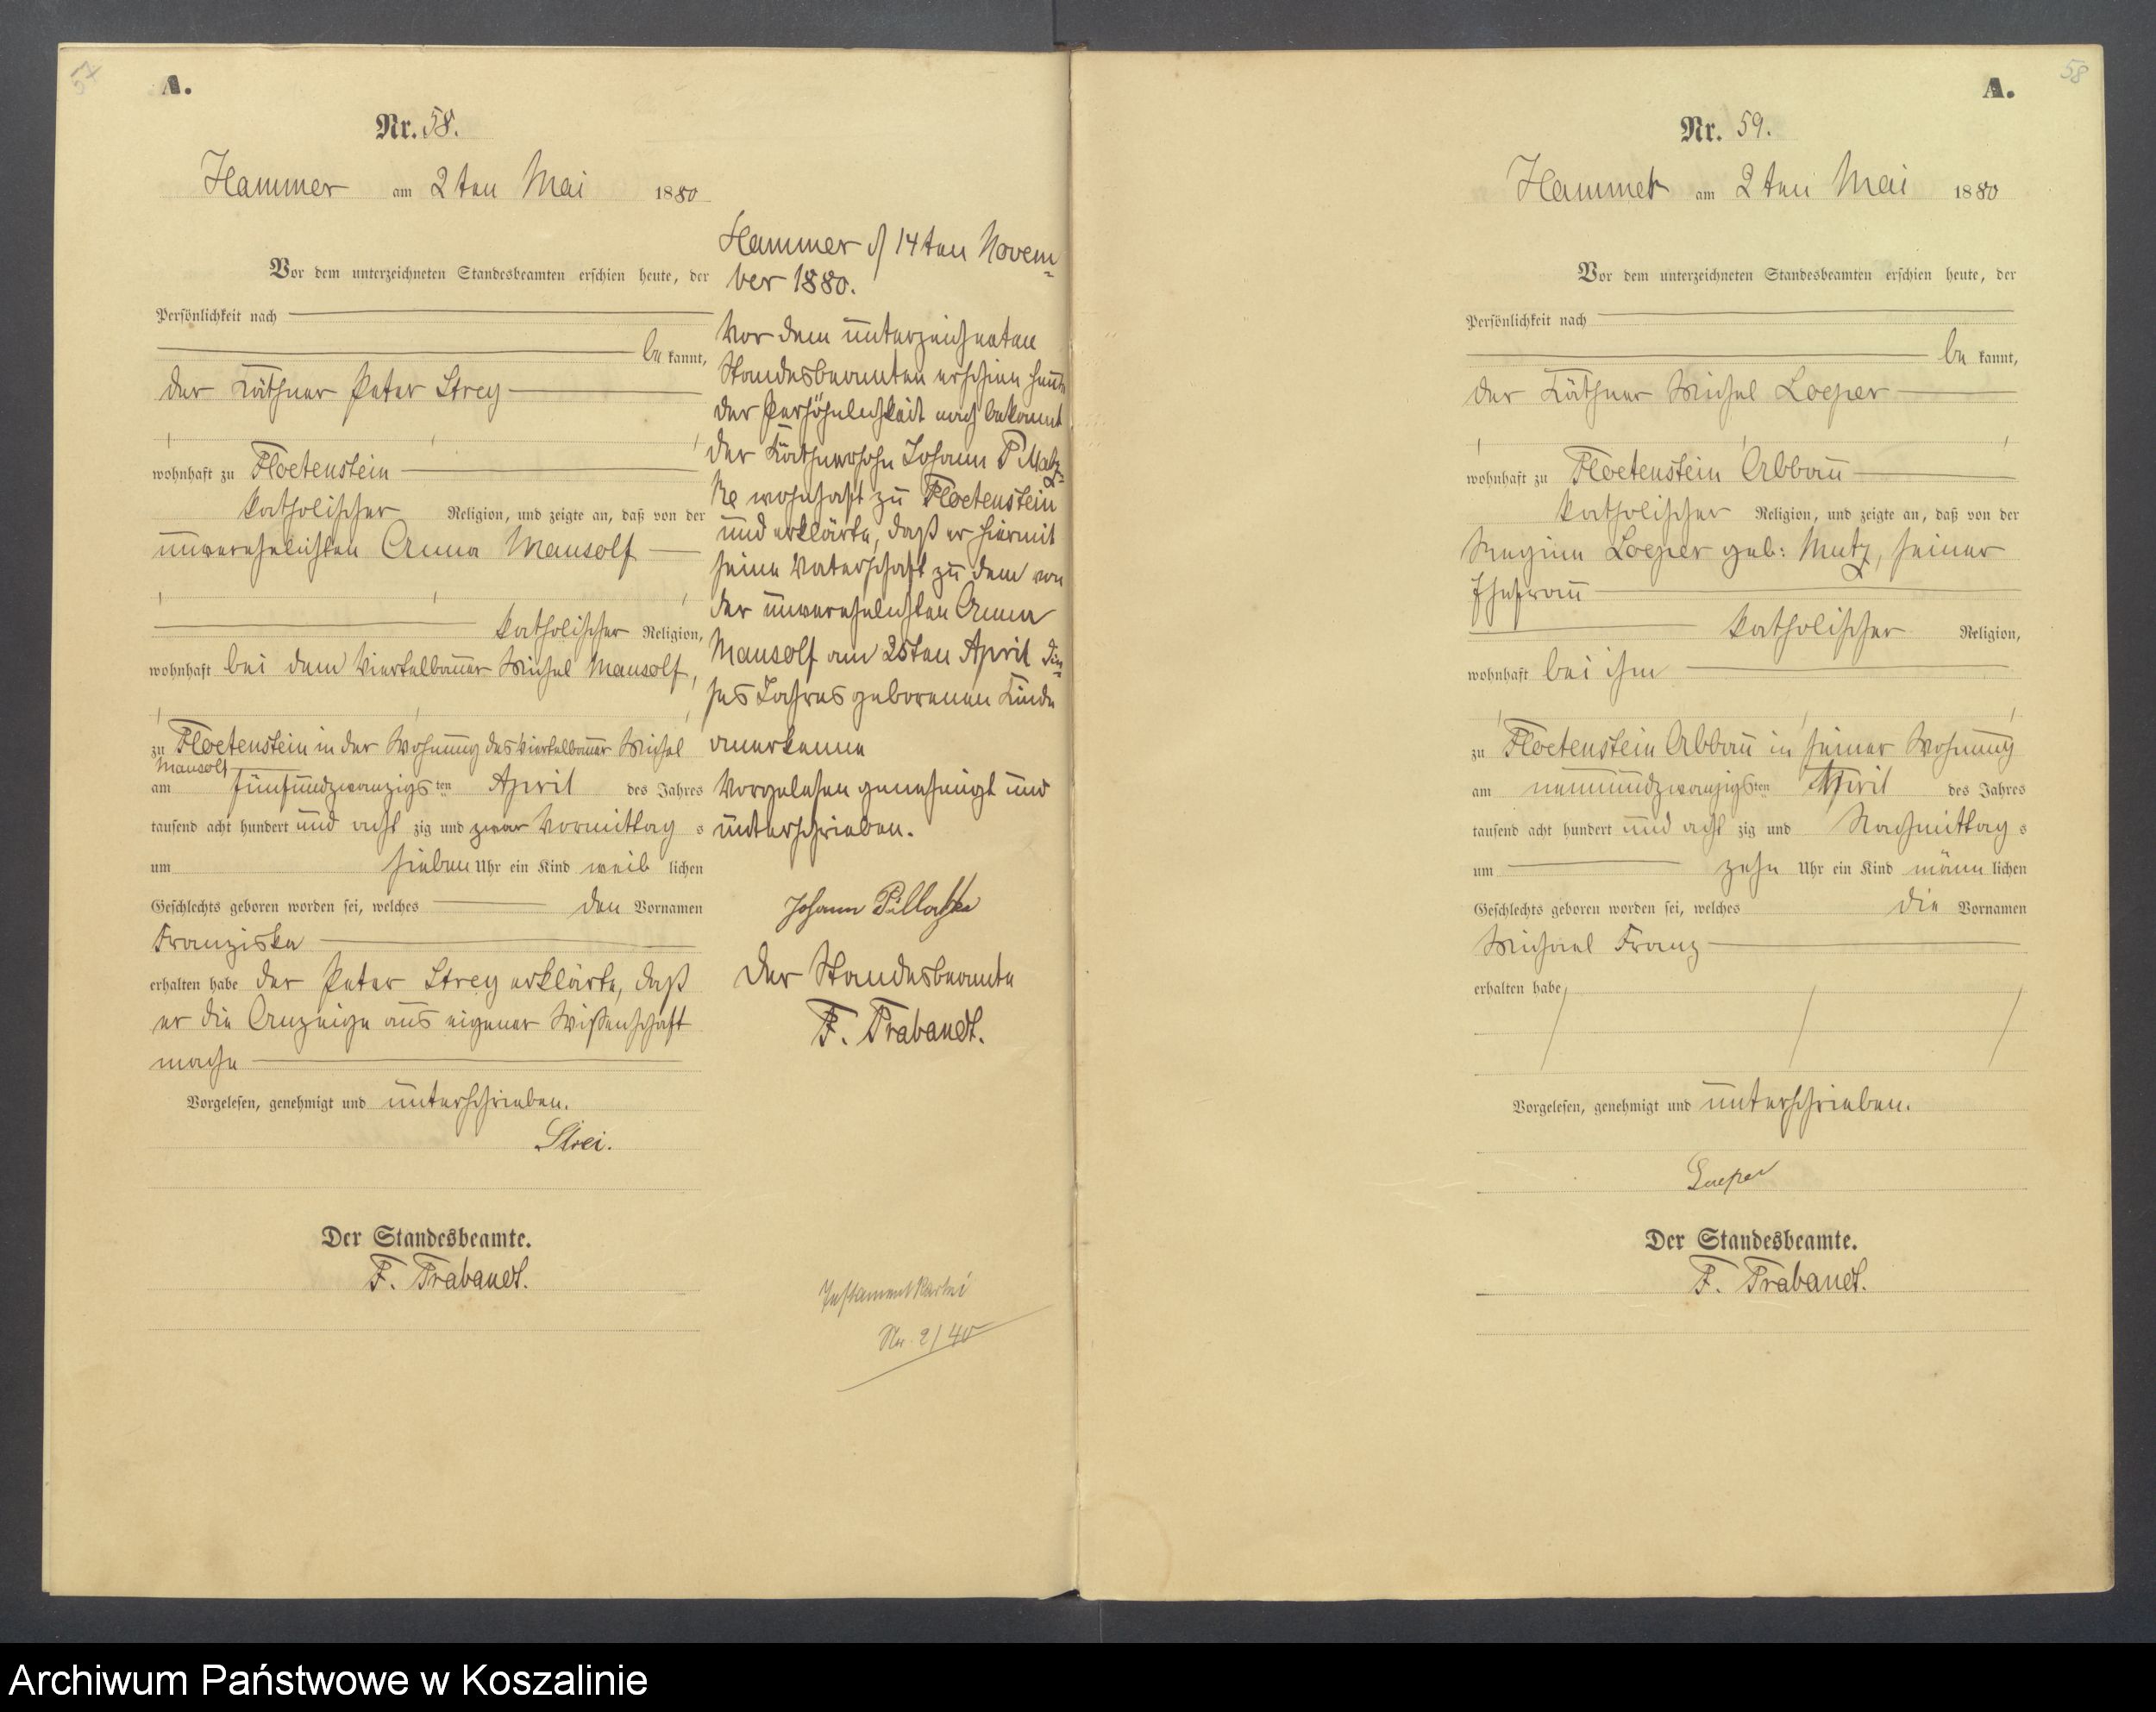 57
A.
Nr. 58.
Hammer am 2ten Mai 1880
Vor dem unterzeichneten Standesbeamten erschien heute, der
Persönlichkeit nach
be kannt,
der Käthner Peter Strey
wohnhaft zu Floetenstein
katholischer Religion, und zeigte an, daß von der
unverehelichten Anna Mausolf
katholischer Religion,
wohnhaft bei dem Viertelbauer Michel Mausolf,
zu Floetenstein in der Wohnung des Viertelbauer Michel
Mausolf
am fünfundzwanzigs ten April des Jahres
tausend acht hundert und acht zig und zwar Vormittag s
um sieben Uhr ein Kind weib lichen
Geschlechts geboren worden sei, welches den Vornamen
Franziska
erhalten habe der Peter Strey erklärte, daß
er die Anzeige aus eigener Wißenschaft
mache
Vorgelesen, genehmigt und unterschrieben.
Strei.
Der Standesbeamte.
F. Trabandt.
Hammer d 14ten Novem-
ber 1880.
Vor dem unterzeichneten
Standesbeamten erschien heute
der Persöhnlichkeit nach bekannt
der Käthnersohn Johann
ke wohnhaft zu Floetenstein
und erklärte, daß er hiermit
seine Vaterschaft zu dem von
der unverehelichten Anna
Mausolf am 25ten April die-
ses Jahres geborenen Kinde
anerkenne
Vorgelesen genehmigt und
unterschrieben.
Johann
Der Standesbeamte
F. Trabandt.
Testamentkartei
Nr. 2/40
58
A.
Nr. 59.
Hammer am 2ten Mai 1880
Vor dem unterzeichneten Standesbeamten erschien heute, der
Persönlichkeit nach
be kannt,
der Käthner Michel Loeper
wohnhaft zu Floetenstein Abbau
katholischer Religion, und zeigte an, daß von der
Regine Loeper geb: Mutz, seiner
Ehefrau
katholischer Religion,
wohnhaft bei ihm
zu Floetenstein Abbau in seiner Wohnung
am neunundzwanzigs ten April des Jahres
tausend acht hundert und acht zig und Nachmittag s
um zehn Uhr ein Kind männ lichen
Geschlechts geboren worden sei, welches die Vornamen
Michael Franz
erhalten habe
Vorgelesen, genehmigt und unterschrieben.
Loeper
Der Standesbeamte.
F. Trabandt.
Archiwum Państwowe w Koszalinie